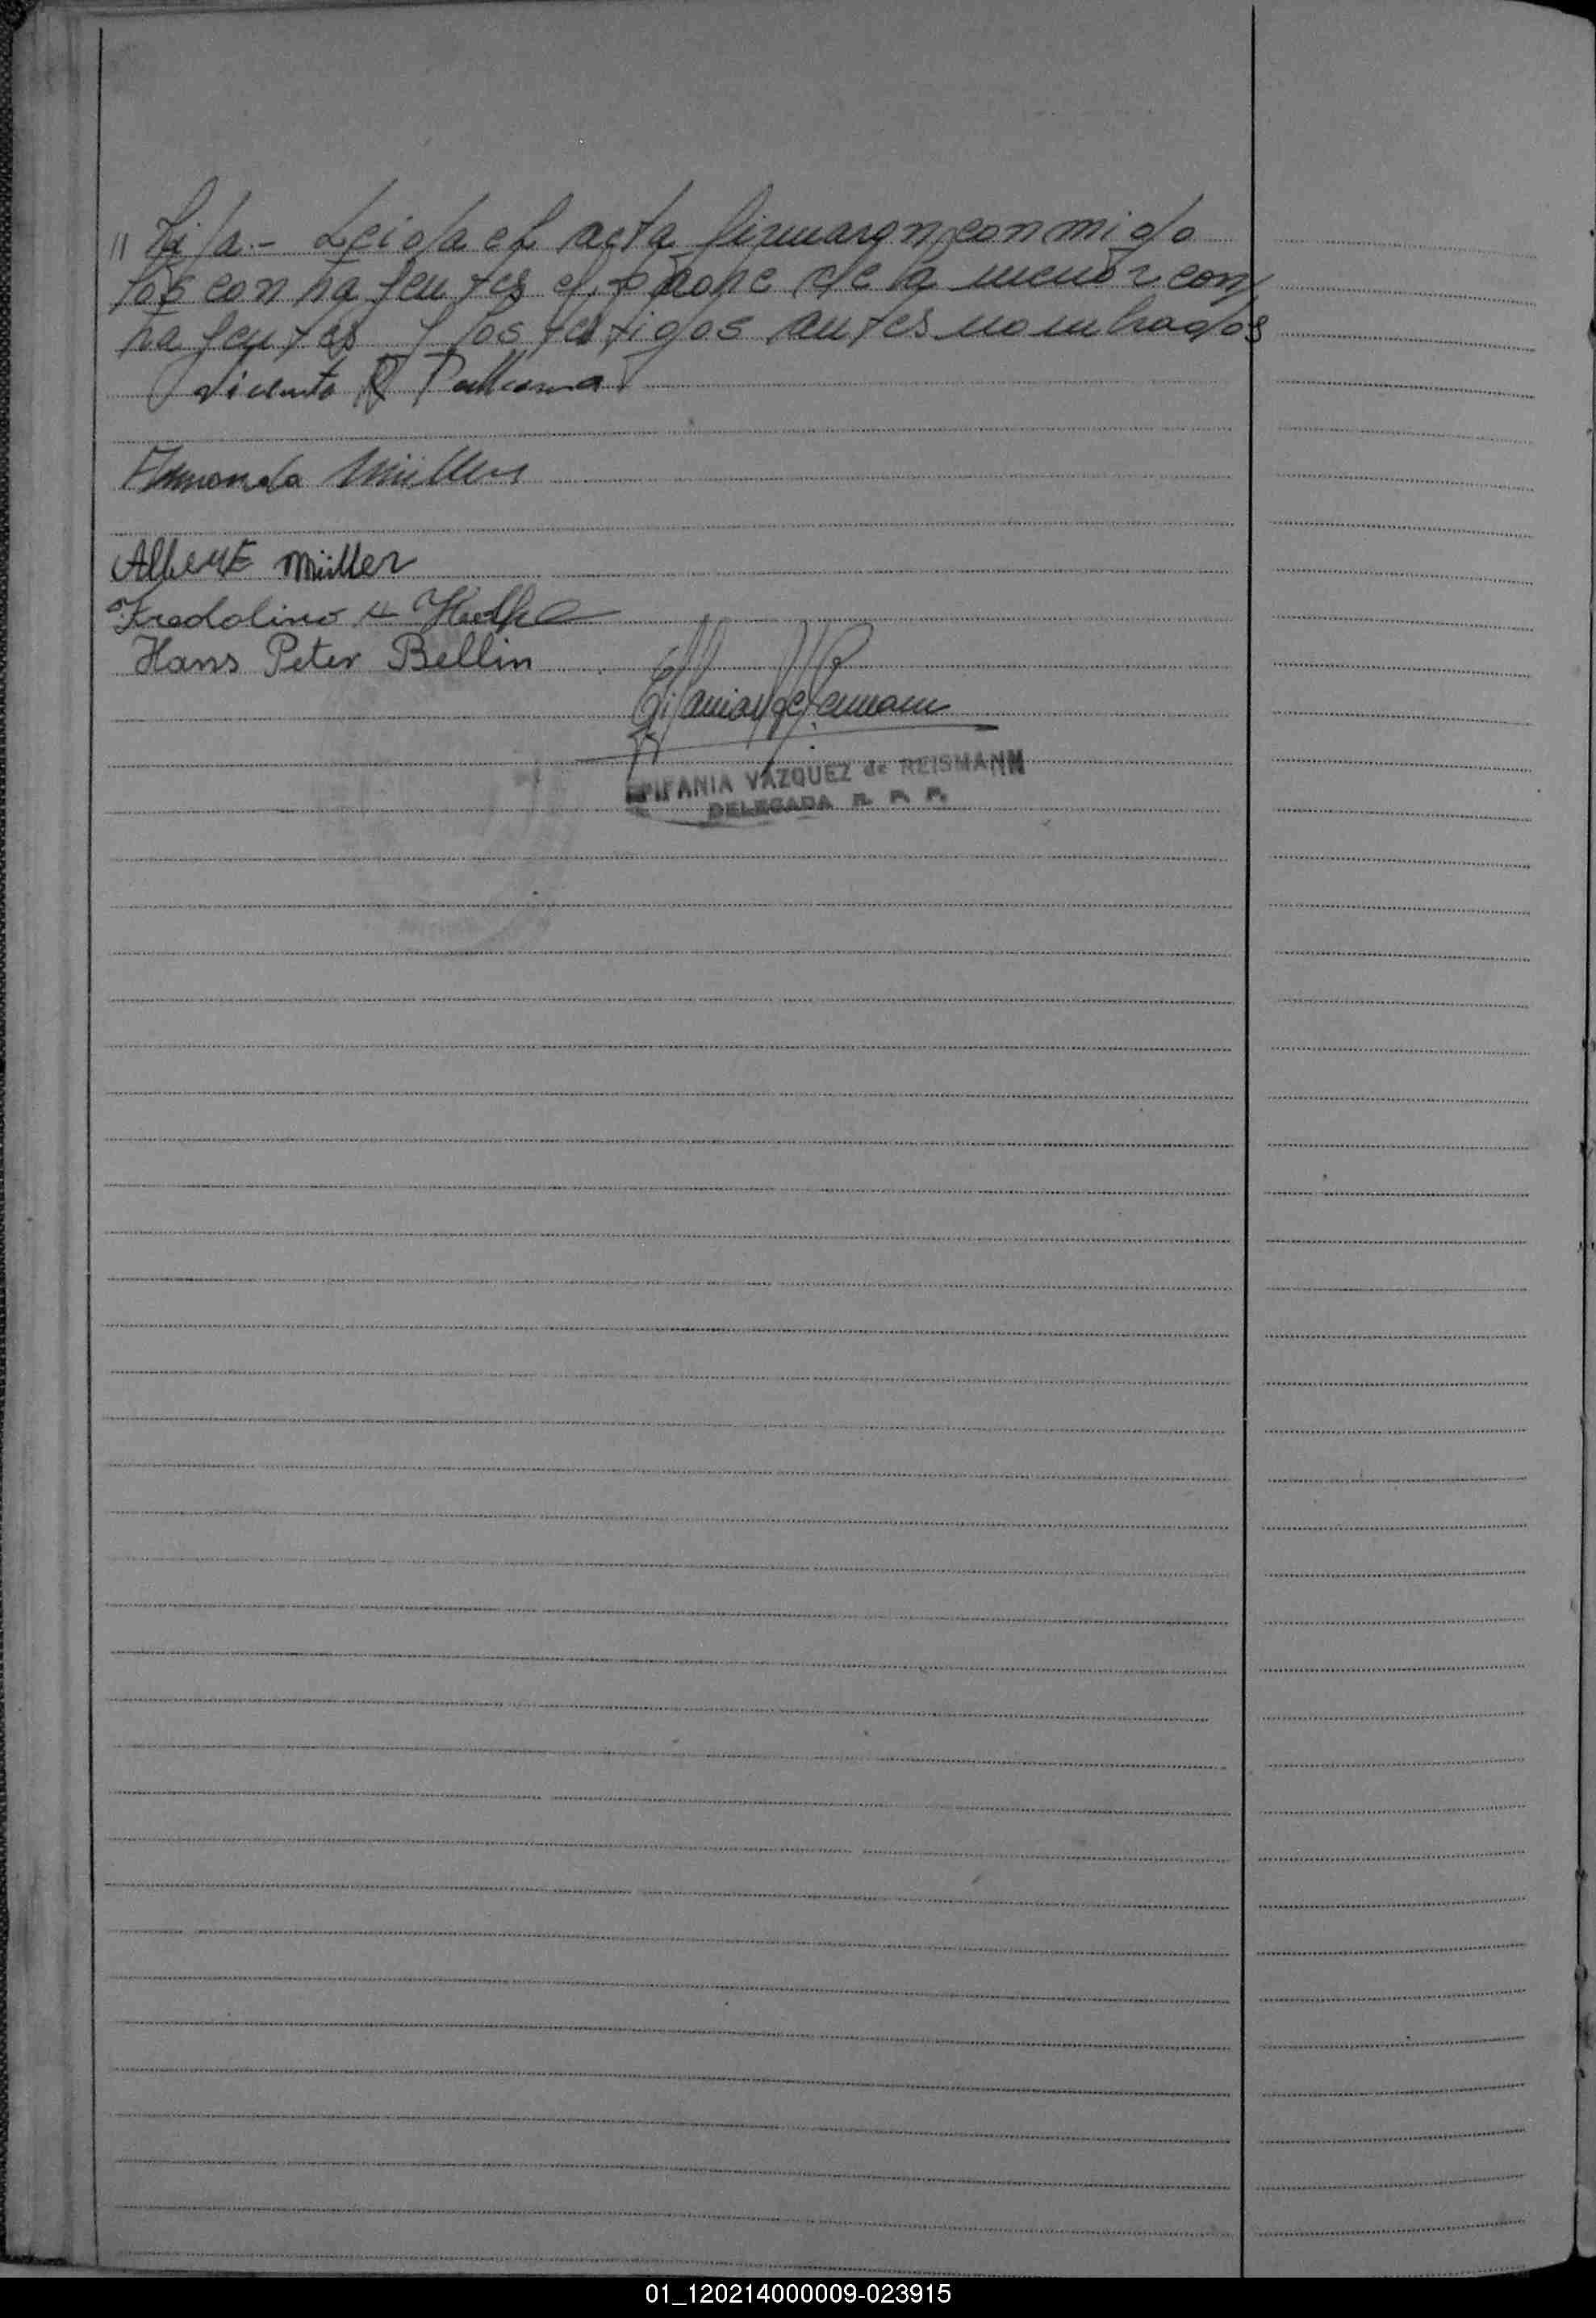 " hija.- Leida el acta firmaron conmigo
los contrayentes el padre de la menor con
trayentes y los testigos antes nombrados
Vicente R
Amanda Müller
Albert Müller
Fredolino
Hans Peter Bellin
EPIFANIA VAZQUEZ de REISMANN
DELEGADA R. P. P.
01_120214000009-023915